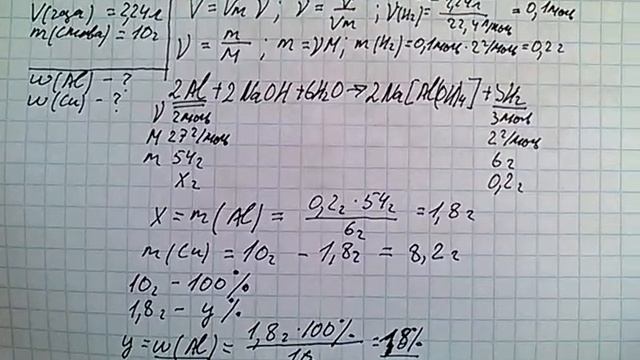 V(газа) = 2,24л
V = Vm ν ; ν = V/Vm ; ν(H₂) = 2,24л/22,4 л/моль = 0,1моль
m(сплава) = 10г
ν = m/M ; m = νM; m(H₂) = 0,1моль · 2г/моль = 0,2г
w(Al) - ?
w(Cu) - ?
2Al + 2NaOH + 6H₂O → 2Na[Al(OH)₄] + 3H₂
ν 2моль 3моль
M 27г/моль 2г/моль
m 54г 6г
Xг 0,2г
X = m(Al) = 0,2г · 54г / 6г = 1,8г
m(Cu) = 10г - 1,8г = 8,2г
10г - 100%
1,8г - y%
y = w(Al) = 1,8г · 100% / 10 = 18%